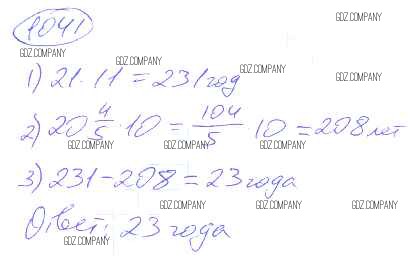 1041
GDZ.COMPANY GDZ.COMPANY
GDZ.COMPANY
1) 21 · 11 = 231 год
GDZ.COMPANY GDZ.COMPANY
2) 20 4/5 · 10 = 104/5 · 10 = 208 лет
GDZ.COMPANY GDZ.COMPANY GDZ.COMPANY
3) 231 - 208 = 23 года
GDZ.COMPANY GDZ.COMPANY GDZ.COMPANY
Ответ: 23 года
GDZ.COMPANY